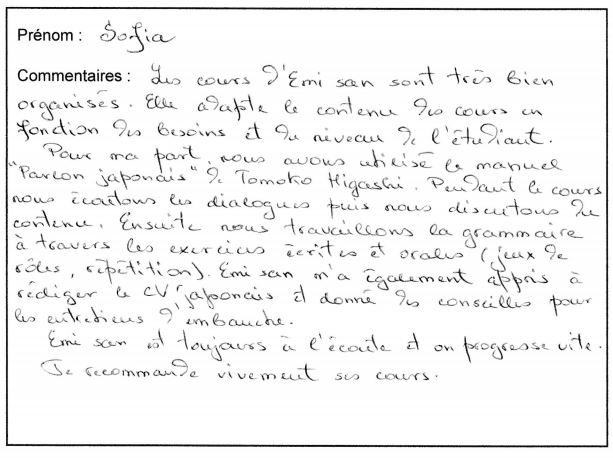 Prénom : Sofia
Commentaires : Les cours d'Emi san sont très bien
organisés. Elle adapte le contenu des cours en
fonction des besoins et du niveau de l'étudiant.
Pour ma part, nous avons utilisé le manuel
"Parlon japonais" de Tomoko Higashi. Pendant le cours
nous écoutons les dialogues puis nous discutons du
contenu. Ensuite nous travaillons la grammaire
à travers les exercices écrites et orales (jeux de
rôles, répétition). Emi san m'a également appris à
rédiger le CV japonais et donné des conseilles pour
les entretiens d'embauche.
Emi san est toujours à l'écoute et on progresse vite.
Je recommande vivement ses cours.